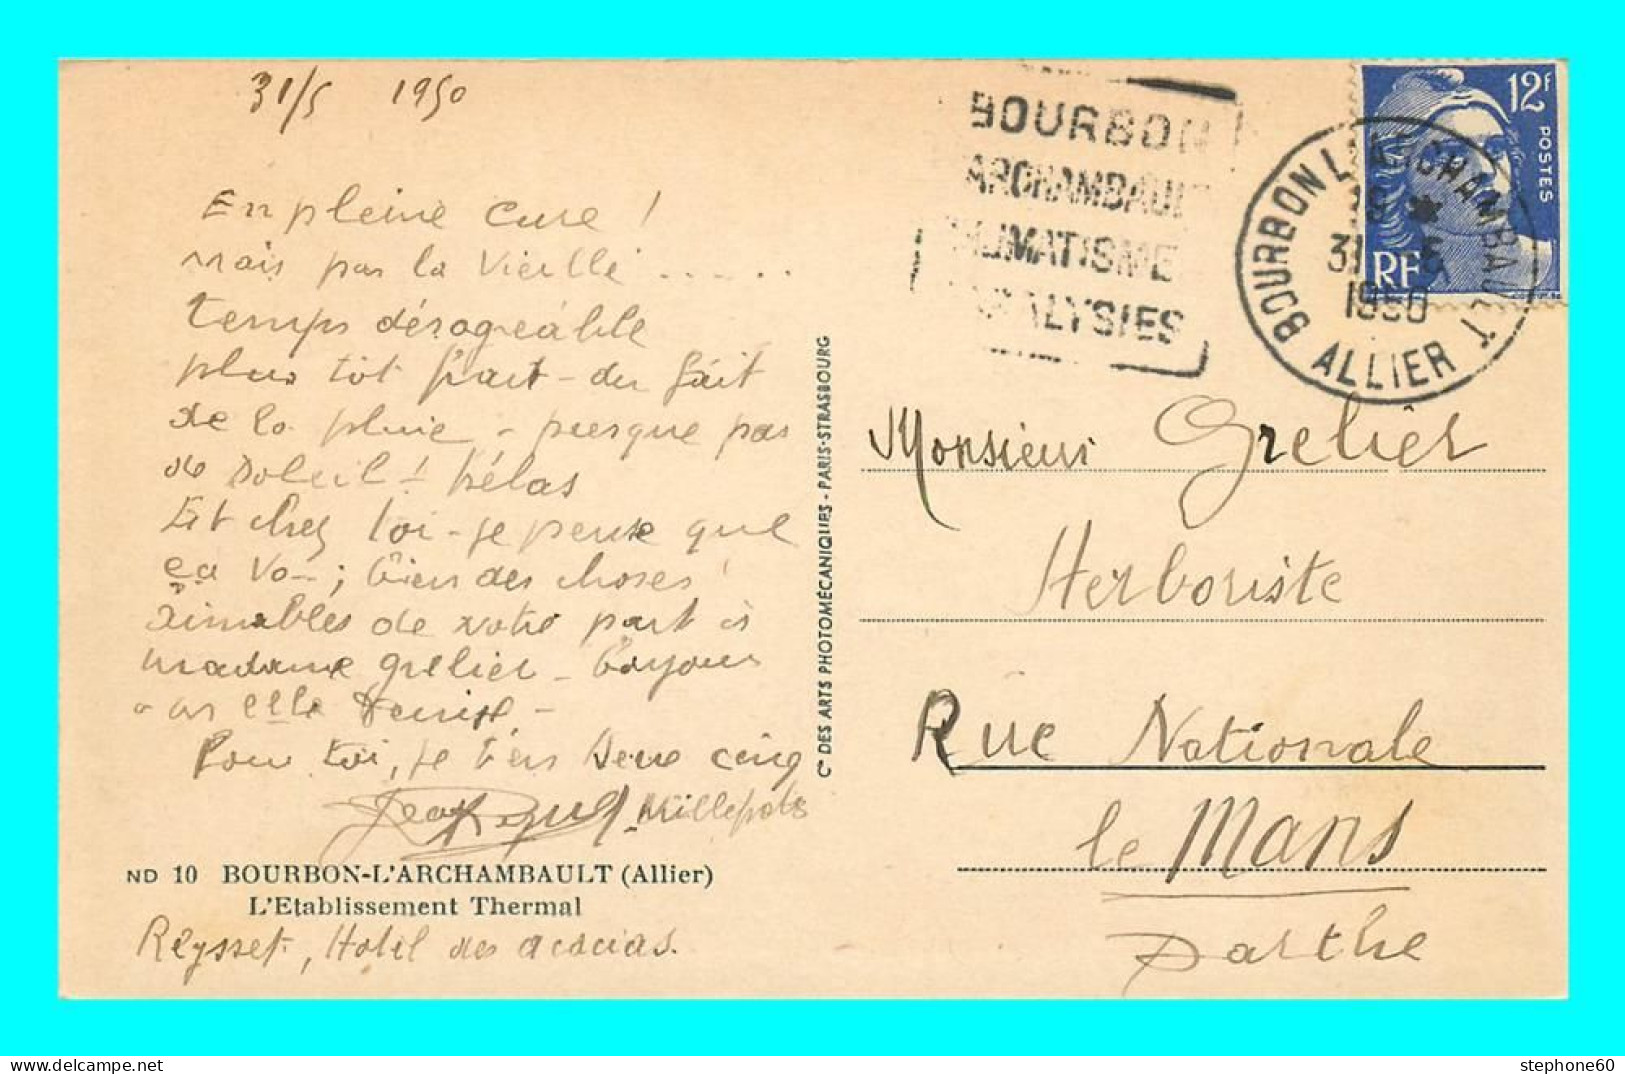 31/5 1950
En pleine cure !
mais pas la vieille ......
temps désagréable
plus tôt frait - du fait
de la pluie - presque pas
de soleil ! hélas
Et chez toi - je pense que
ça va - ; bien des choses
aimables de notre part à
madame Grelier -
elle Denise -
Pour toi, je t'en serre cinq
Millepats
ND 10 BOURBON-L'ARCHAMBAULT (Allier)
L'Etablissement Thermal
Reysset, Hotel des acacias.
Cie DES ARTS PHOTOMÉCANIQUES - PARIS-STRASBOURG
BOURBON
ARCHAMBAUL
LIMATISME
ALYSIES
BOURBON L'ARCHAMBAULT
31 5
1950
ALLIER
12F
POSTES
RF
Monsieur Grelier
Herboriste
Rue Nationale
le Mans
Sarthe
stephone60